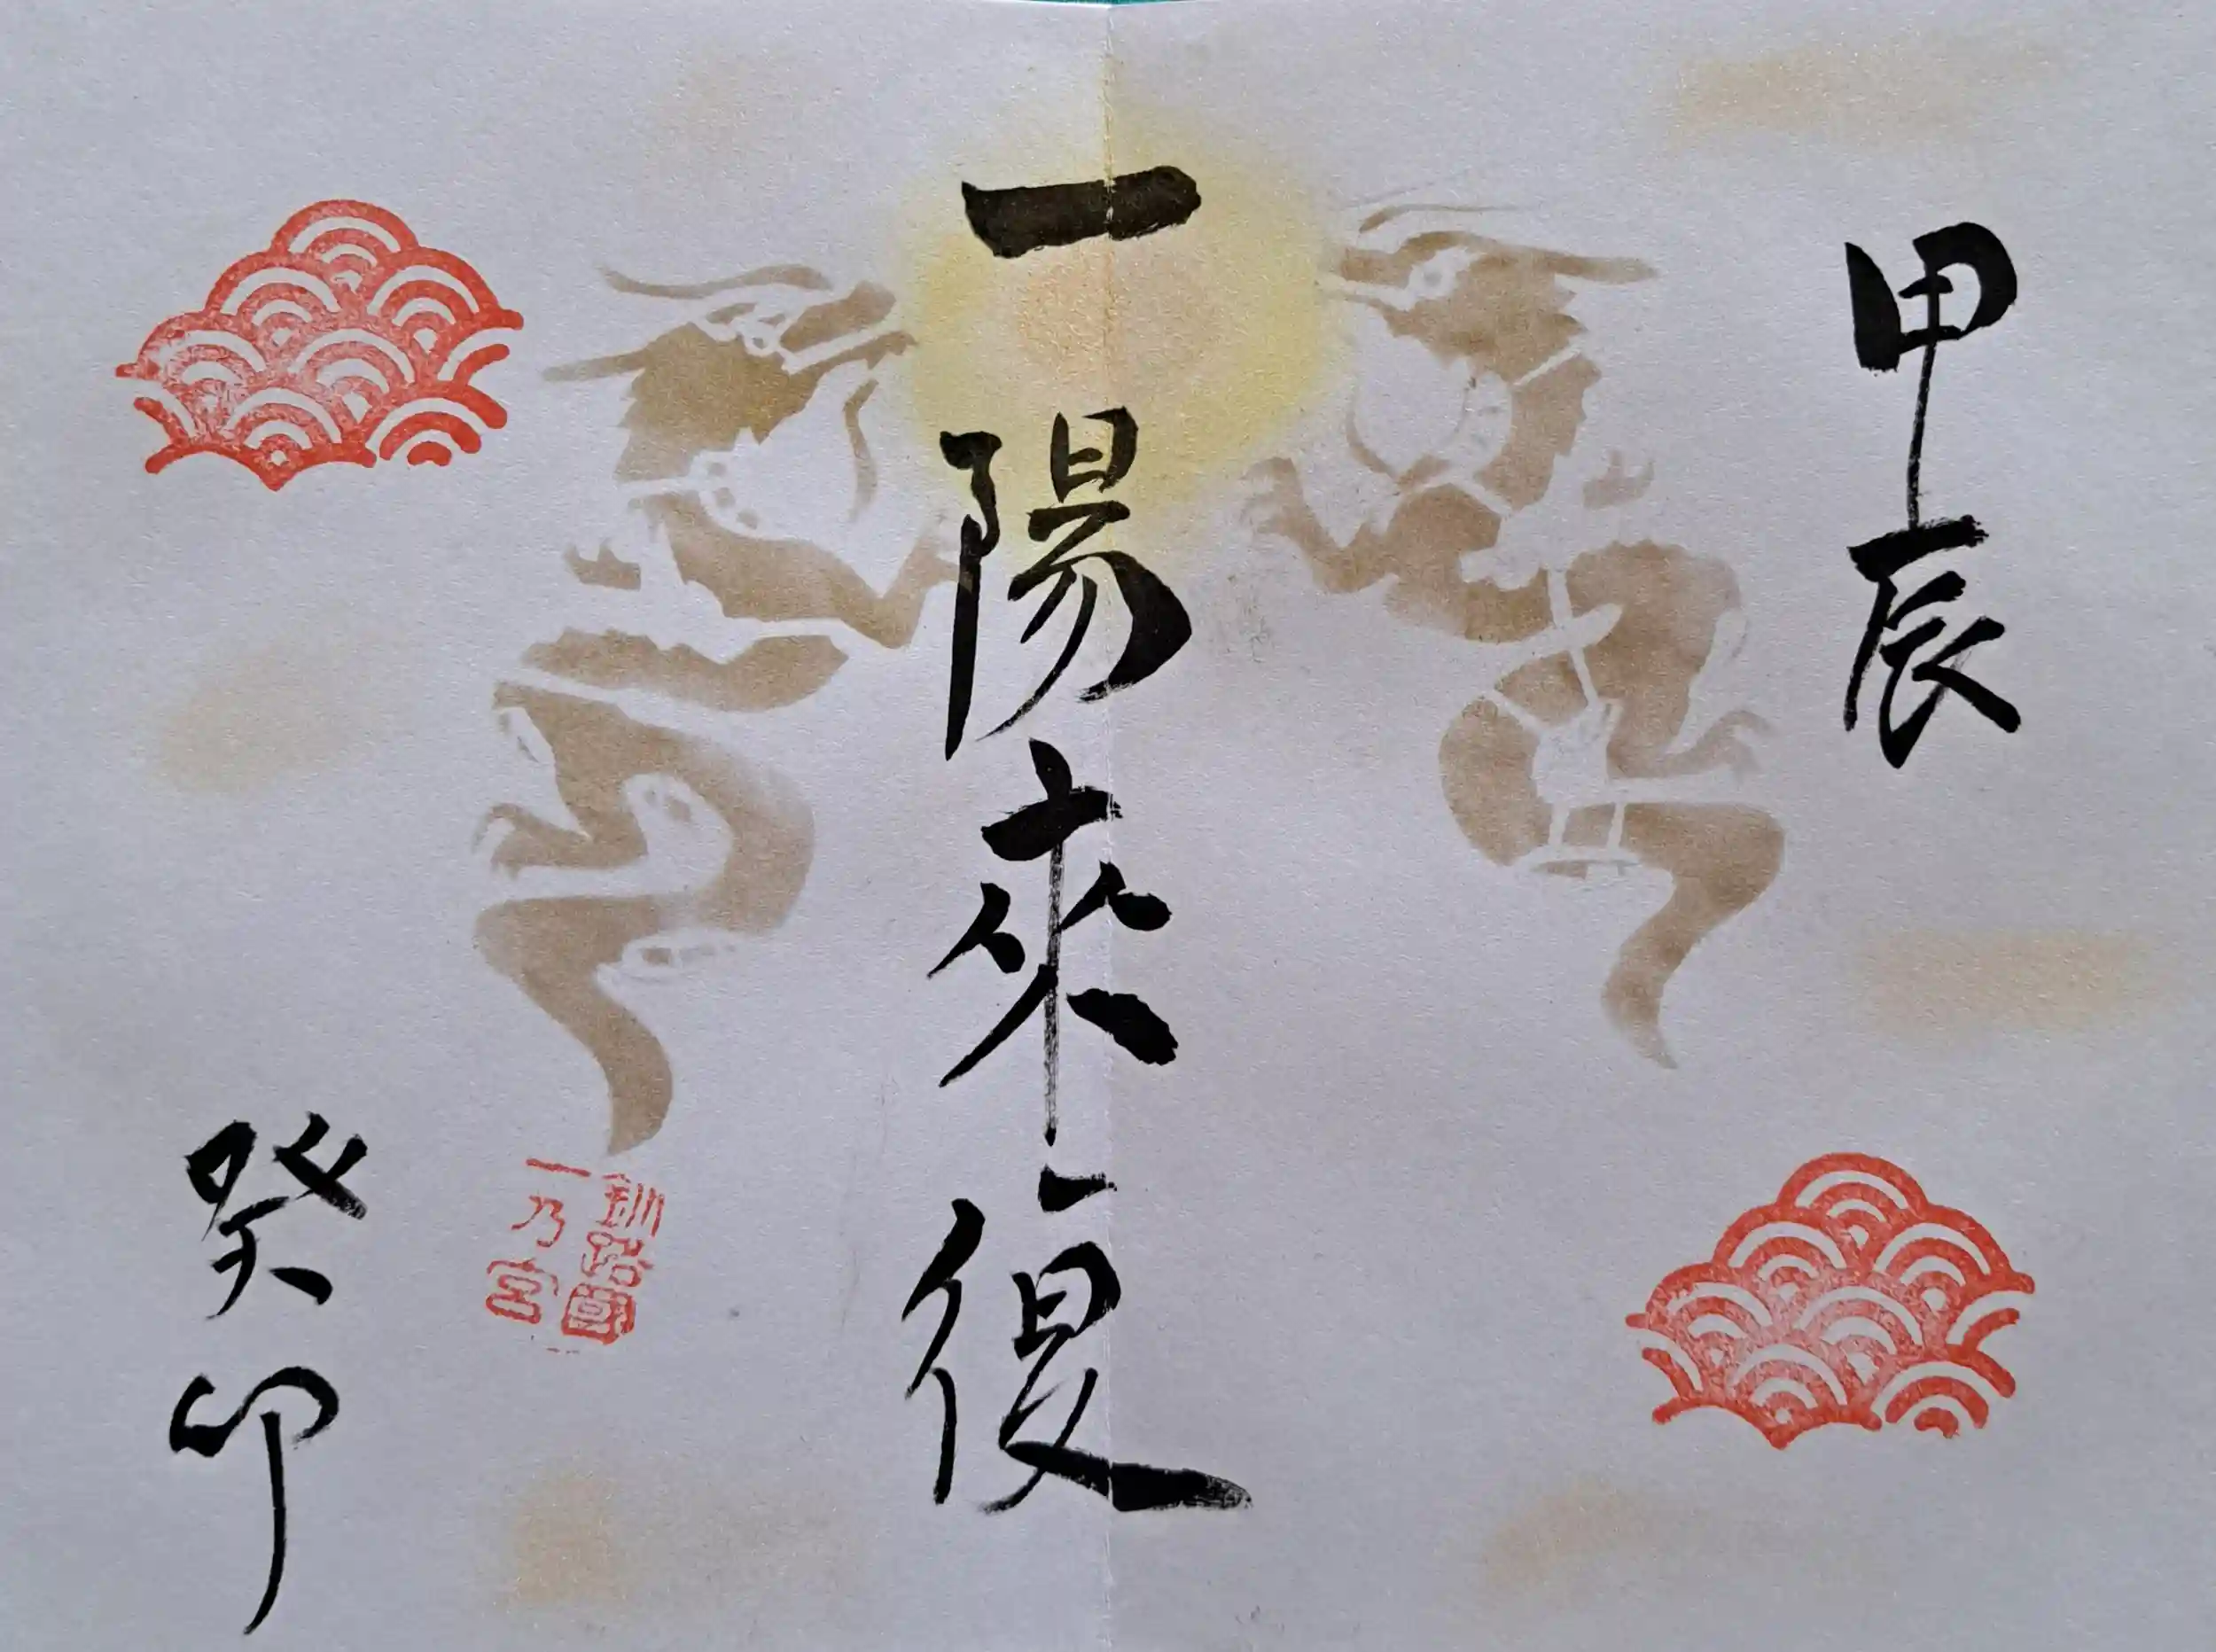 甲辰
一陽来復
釧路國
一乃宮
癸卯